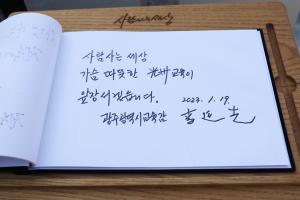 사람사는 세상
사람사는 세상
가슴 따뜻한 光州교육이
앞장서겠습니다.
2023. 1. 19.
광주광역시교육감